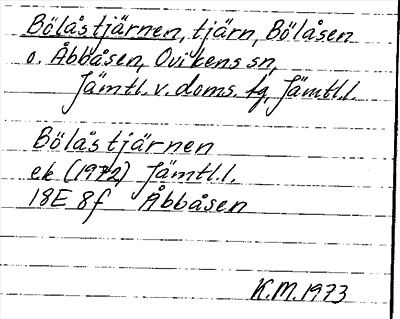 Bölåstjärnen, tjärn, Bölåsen
o. Åbbåsen, Ovikens sn,
Jämtl. v. doms. tg, Jämtl.l.
Bölåstjärnen
ek (1972) Jämtl.l.
18E 8f Åbbåsen
K.M. 1973